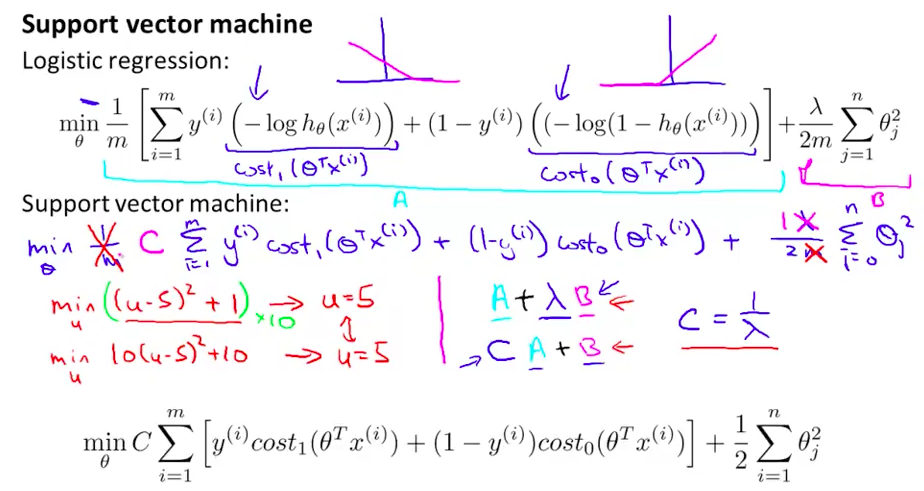 Support vector machine
Logistic regression:
min_θ 1/m [ ∑_{i=1}^{m} y^{(i)} (−log h_θ(x^{(i)})) + (1 − y^{(i)}) ((−log(1 − h_θ(x^{(i)}))) ] + λ/2m ∑_{j=1}^{n} θ_j^2
cost_1(θ^T x^{(i)}) cost_0(θ^T x^{(i)})
A B
Support vector machine:
min_θ 1/m C ∑_{i=1}^{m} y^{(i)} cost_1(θ^T x^{(i)}) + (1-y^{(i)}) cost_0(θ^T x^{(i)}) + 1 λ/2m ∑_{i=0}^{n} θ_j^2
min_u ((u-5)^2 + 1) ×10 → u=5
A + λ B ←
C = 1/λ
min_u 10(u-5)^2+10 → u=5
→ C A + B ←
min_θ C ∑_{i=1}^{m} [ y^{(i)} cost_1(θ^T x^{(i)}) + (1 − y^{(i)}) cost_0(θ^T x^{(i)}) ] + 1/2 ∑_{i=1}^{n} θ_j^2